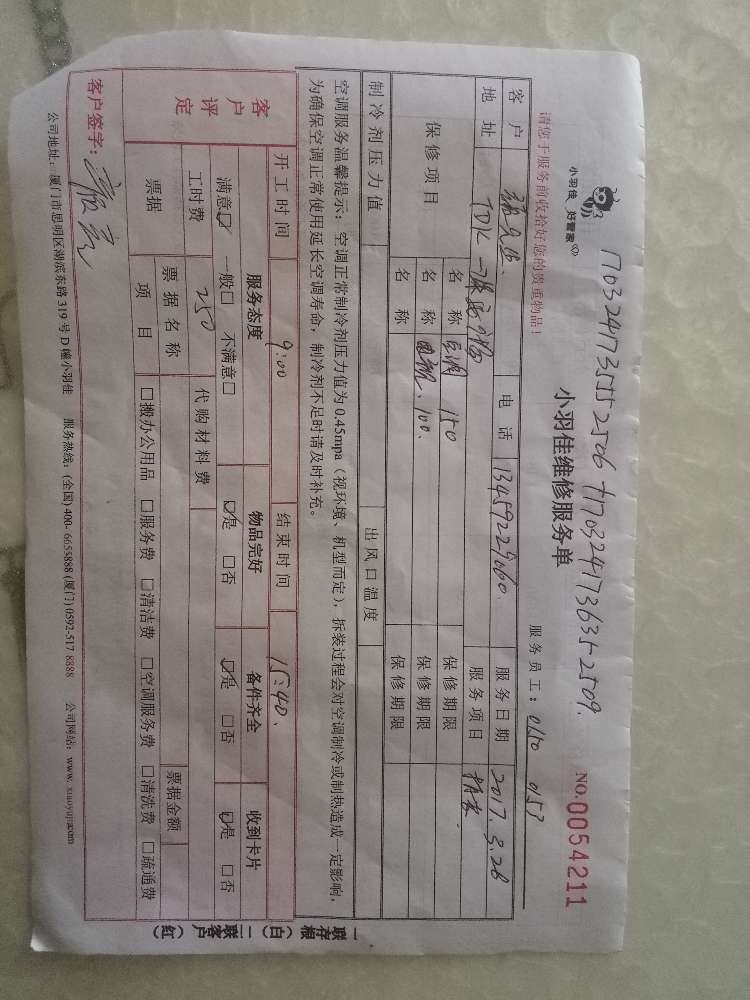 17032417355 2506 +17032417363 52509.
小羽佳 好管家
小羽佳维修服务单
NO.0054211
请您于服务前收拾好您的贵重物品！
服务员工：0150 0153
客户 电话 13459229060 服务日期 2017.3.28
地址 TDK 服务项目
保修项目 名称 空调 150 保修期限
名称 100. 保修期限
名称 保修期限
制冷剂压力值 出风口温度
空调服务温馨提示：空调正常制冷剂压力值为0.45mpa（视环境、机型而定），拆装过程会对空调制冷或制热造成一定影响，
为确保空调正常使用延长空调寿命，制冷剂不足时请及时补充。
开工时间 9:00 结束时间 15:40.
客户评定 服务态度 物品完好 备件齐全 收到卡片
满意☑ 一般□ 不满意□ ☑是 □否 ☑是 □否 ☑是 □否
工时费 250 代购材料费
票据 票据名称 票据金额
项目 □搬办公用品 □服务费 □清洁费 □空调服务费 □清洗费 □疏通费
客户签字：
公司地址：厦门市思明区湖滨东路319号D幢小羽佳 服务热线：(全国)400-6655888 (厦门)0592-517 8888 公司网站：www.xiaoyujia.com
一联存根（白） 二联客户（红）